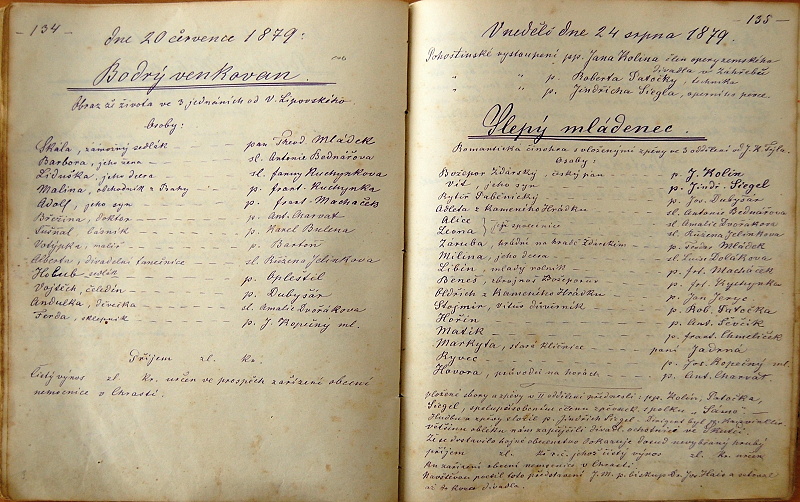 - 134 -
dne 20 července 1879:
Bodrý venkovan.
Obraz ze života ve 3 jednáních od V. Lipovského.
Osoby:
Skála, zámožný sedlák pan Theod. Mládek
Barbora, jeho žena sl. Antonie Bednářova
Liduška, jeho dcera sl. fanny Kuchynkova
Malina, obchodník z Prahy p. frant. Kuchynka
Adolf, jeho syn p. frant. Macháček
Březina, doktor p. Ant. Charvat
básník p. Karel Bulena
Votýpka, malíř p. Barton
Alberta, divadelní tanečnice sl. Růžena Jelinkova
Holub sedlák p. Opleštil
Vojtěch, čeledín p. Dubyšar
Andulka, děvečka sl. Amalie Dvořákova
Ferda, sklepník p. J. Kopecny ml.
Příjem zl. kr.
Čistý výnos zl. kr. určen ve prospěch zařízení obecní
nemocnice v Chrasti.
- 135 -
V neděli dne 24 srpna 1879.
Pohostinské vystoupení pp. Jana Kolina člen opery zemského
divadla v Záhřebě
" " p. Roberta Patočky, technika
" " p. Jindřicha Siegla, operního pěvce.
Slepý mládenec.
Romantická činohra s vloženými zpěvy ve 3 odděleních od J. K. Tyla.
Osoby:
Božepor Žďárský, český pán p. J. Kolin
Vít, jeho syn p. Jindř. Siegel
Rytíř p. Jos. Dubyšar
Adleta z Kamenného Hrádku sl. Antonie Bednářova
Alice sl. Amalie Dvořákova
Leona } její společnice sl. Růžena Jelinkova
Záruba, hradní na hradě Žďárském p. Mládek
Milina, jeho dcera sl. Luis. Dolákova
Libín, mladý p. frt. Macháček
Beneš, zbrojnoš Božeporův p. frt. Kychynka
Oldřich z Kamenného Hrádku p. Jan Jerye
Stojmír, Vítův důvěrník p. Rob. Patočka
Hořín p. Ant. Ševčík
Matík p. frant. Chmelíček
Markyta, stará klíčnice paní Jadrná
Kyvec p. Jos. Kopecny ml.
Hovora, průvodci na horách p. Ant. Charvát.
vložené sbory a zpěvy v II oddělení přednesli: pp. Kolin, Patočka,
Siegel, spoluučinkováním členů zpěvack. spolku „Slavoj"
Hudbu a zpěvy složil p. Jindřich Siegel.
většinu obleků nám zapůjčili divad. ochotníci ve Skutči.
že se dostavilo hojné obecenstvo dokazuje dosud nevybraný hrubý
příjem zl. kr. jehož čistý výnos zl. kr. určen
ku zařízení obecní nemocnice v Chrasti.
Návštěvou poctil toto představení J. M. p. biskup Dr. Jos. Hais a setrval
až do konce divadla.